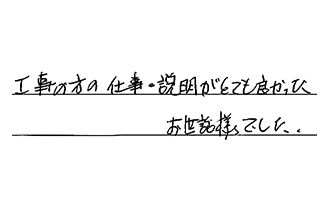 工事の方の仕事・説明がとても良かった
お世話様でした。